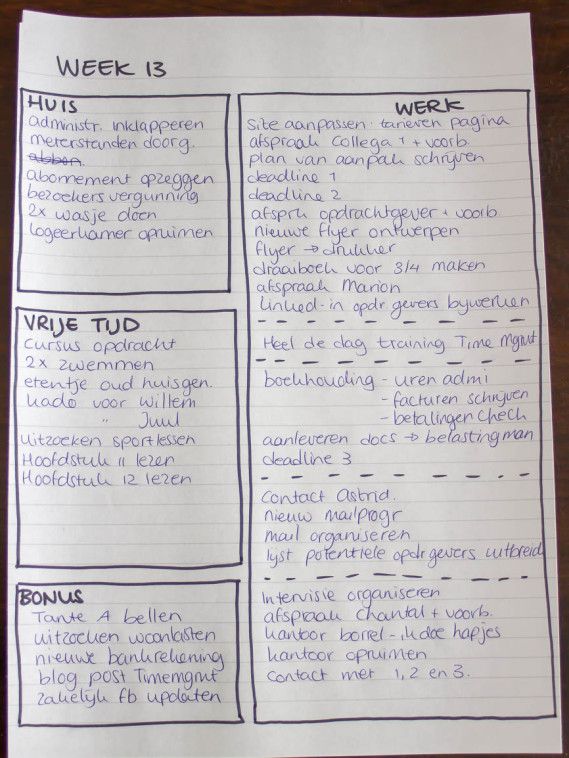 WEEK 13
HUIS
administr. inklapperen
meterstanden doorg.
abbon.
abonnement opzeggen
bezoekersvergunning
2x wasje doen
logeerkamer opruimen
VRIJE TIJD
cursus opdracht
2x zwemmen
etentje oud huisgen.
kado voor Willem
" Juul
uitzoeken sportlessen
Hoofdstuk 11 lezen
Hoofdstuk 12 lezen
BONUS
Tante A bellen
uitzoeken woonlasten
nieuwe bankrekening
blog post Timemgmt
zakelijk fb updaten
WERK
Site aanpassen · tarieven pagina
afspraak collega 1 + voorb.
plan van aanpak schrijven
deadline 1
deadline 2
afsprk opdrachtgever + voorb
nieuwe flyer ontwerpen
flyer → drukker
draaiboek voor 3/4 maken
afspraak Marion
linked-in opdr.gevers bijwerken
Heel de dag training Time Mgmt
boekhouding - uren admi
- facturen schrijven
- betalingen check
aanleveren docs → belastingman
deadline 3
Contact Astrid.
nieuw mailprogr
mail organiseren
lijst potentiele opdr.gevers uitbreid
Intervisie organiseren
afspraak Chantal + voorb.
kantoor borrel - ik doe hapjes
kantoor opruimen
contact met 1, 2 en 3.